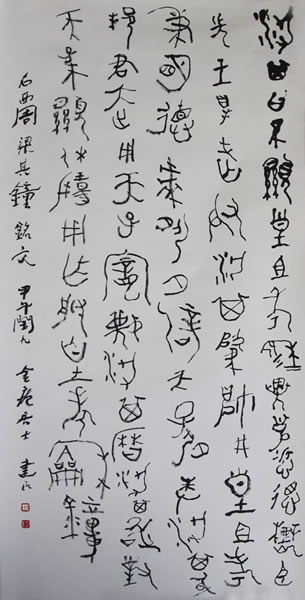 汈其曰不顯皇且考穆異異克德農臣
先王得屯亡敃汈其肇帥井皇且考
秉明德虔夙夕辟天子汈其身
邦君大正用天子寵蔑汈其曆汈其敢對
天子不顯休揚用乍朕皇且考龢鐘
右西周梁其鐘銘文 甲午閏九 居士